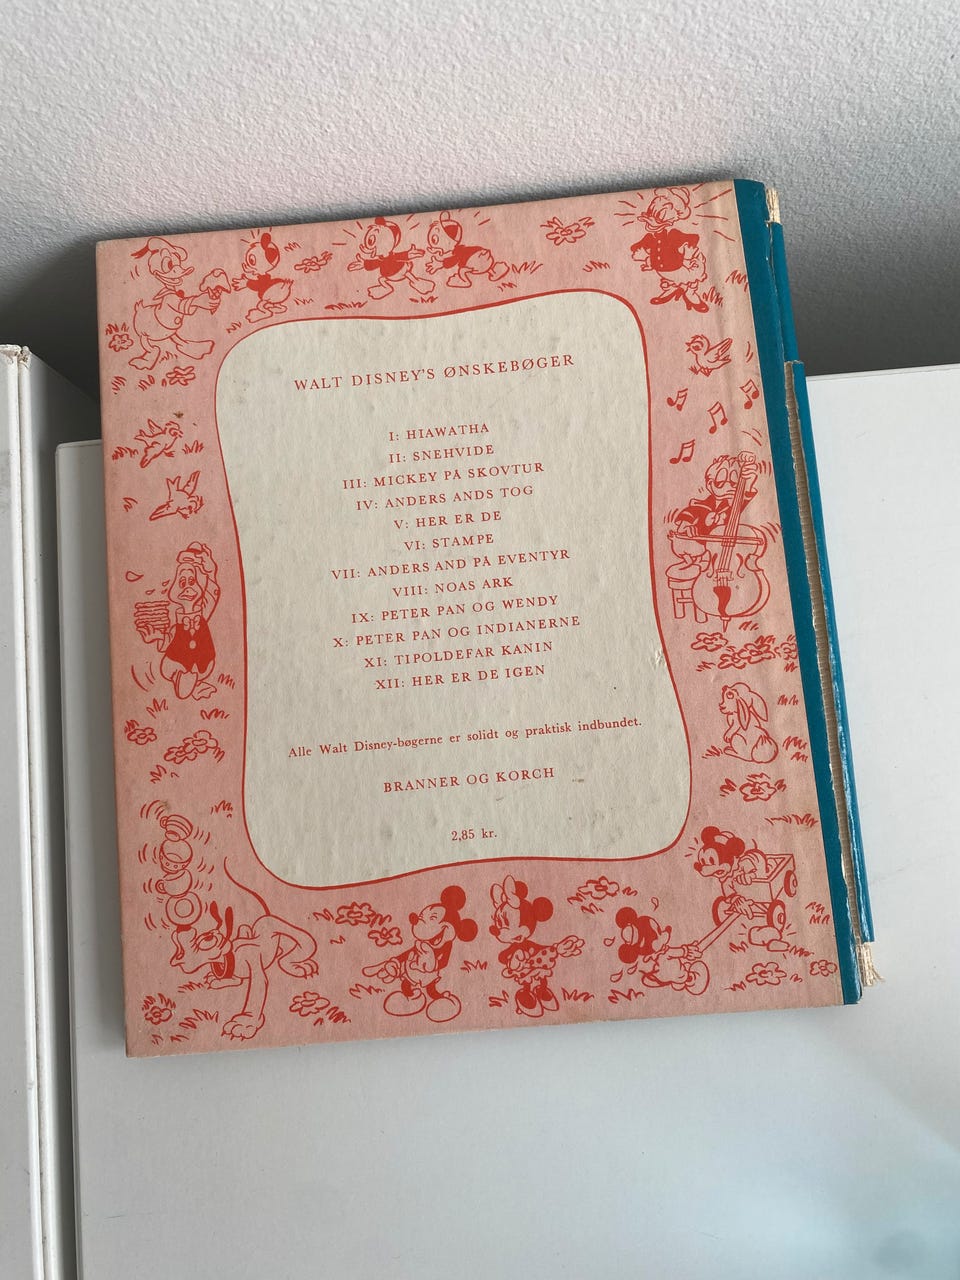 WALT DISNEY'S ØNSKEBØGER
I: HIAWATHA
II: SNEHVIDE
III: MICKEY PÅ SKOVTUR
IV: ANDERS ANDS TOG
V: HER ER DE
VI: STAMPE
VII: ANDERS AND PÅ EVENTYR
VIII: NOAS ARK
IX: PETER PAN OG WENDY
X: PETER PAN OG INDIANERNE
XI: TIPOLDEFAR KANIN
XII: HER ER DE IGEN
Alle Walt Disney-bøgerne er solidt og praktisk indbundet.
BRANNER OG KORCH
2,85 kr.